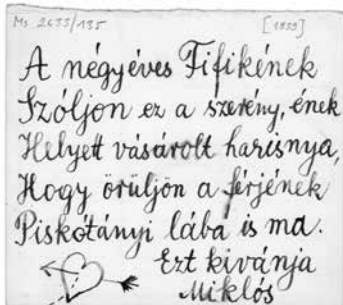 Ms 2633/135 [1939]
A négyéves Fifikének
Szóljon ez a szerény, ének
Helyett vásárolt harisnya,
Hogy örüljön a férjének
Piskótányi lába is ma.
Ezt kivánja
Miklós